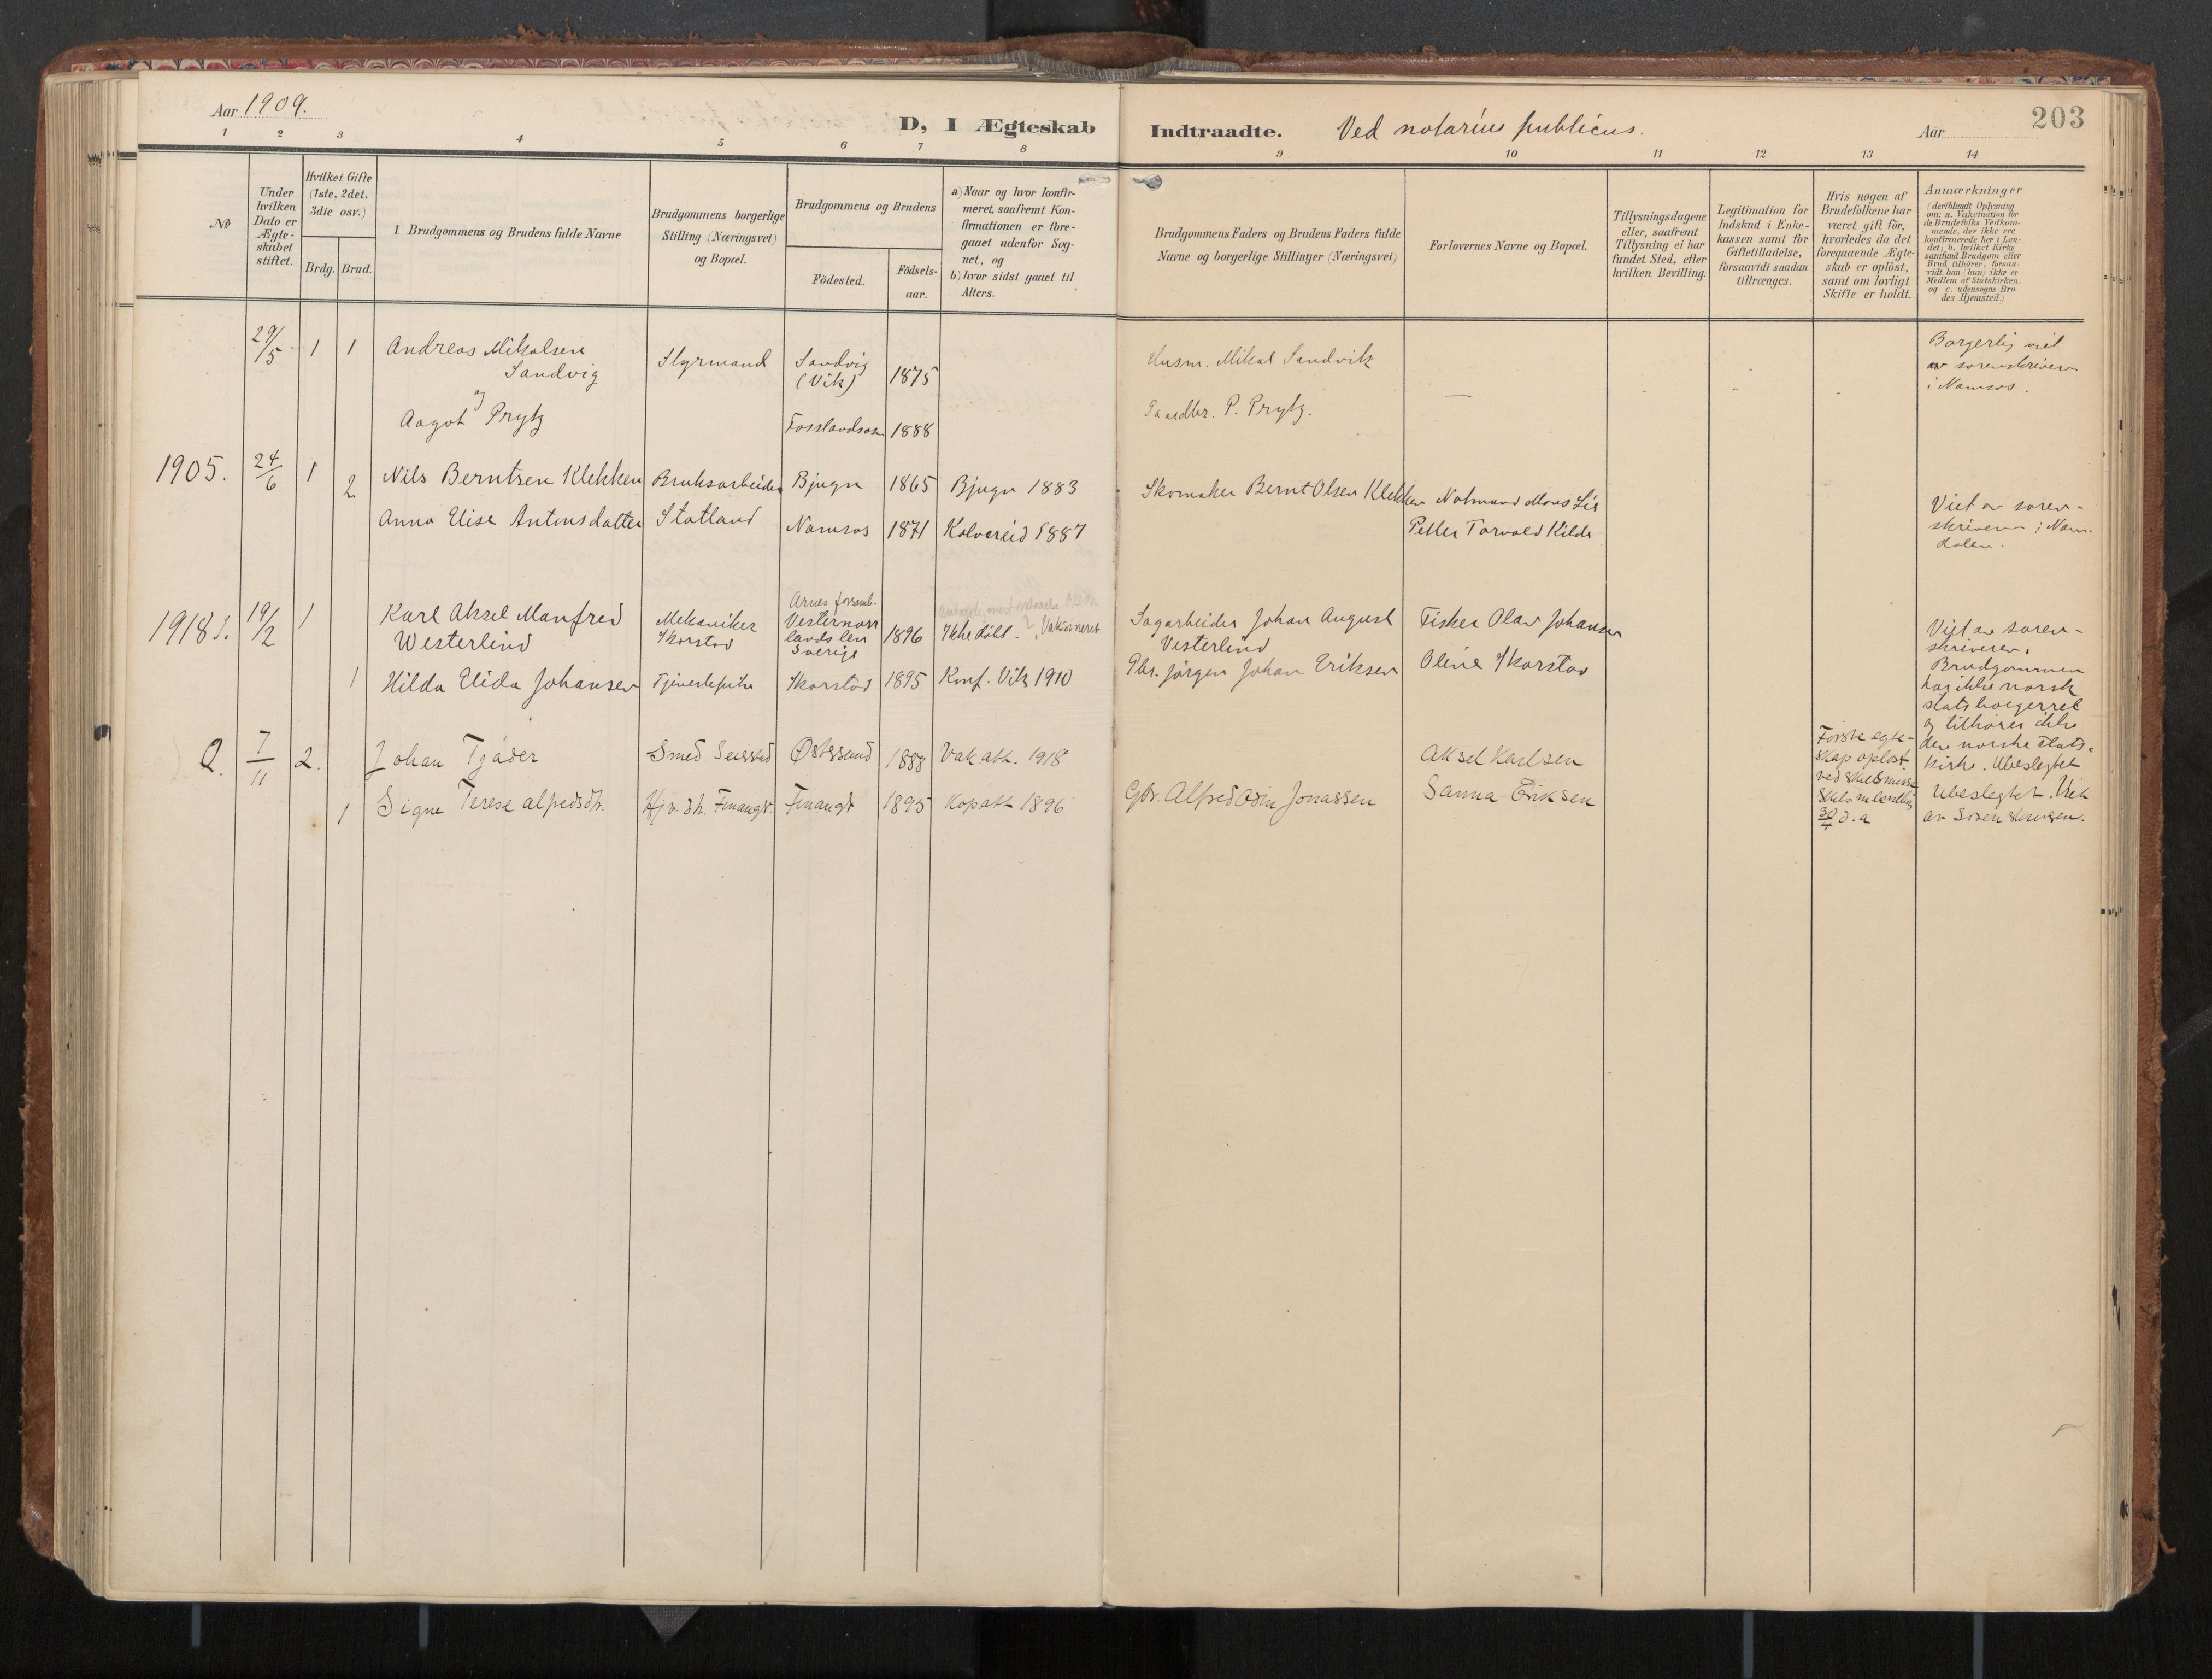 Aar 1909.
D, I Ægteskab Indtraadte. Ved notarius publicus.
Aar
203
1 2 3 4 5 6 7 8 9 10 11 12 13 14
No
Under
hvilken
Dato er
Ægte-
skabet
stiftet.
Hvilket Gifte
(1ste, 2det,
3die osv.)
Brdg. Brud.
1 Brudgommens og Brudens fulde Navne
Brudgommens borgerlige
Stilling (Næringsvei)
og Bopæl.
Brudgommens og Brudens
Födested.
Födsels-
aar.
a) Naar og hvor konfir-
meret, saafremt Kon-
firmationen er fore-
gaaet udenfor Sog-
net, og
b) hvor sidst gaaet til
Alters.
Brudgommens Faders og Brudens Faders fulde
Navne og borgerlige Stillinger (Næringsvei)
Forlovernes Navne og Bopæl.
Tillysningsdagene
eller, saafremt
Tillysning ei har
fundet Sted, efter
hvilken Bevilling.
Legitimation for
Indskud i Enke-
kassen samt for
Giftetilladelse,
forsaavidt saadan
tiltrænges.
Hvis nogen af
Brudefolkene har
været gift för,
hvorledes da det
foregaaende Ægte-
skab er oplöst,
samt om lovligt
Skifte er holdt.
Anmærkninger
(deriblandt Oplysning
om: a. Vakcination for
de Brudefolks Vedkom-
mende, der ikke ere
konfirmerede her i Lan-
det; b. hvilket Kirke-
samfund Brudgom eller
Brud tilhörer, forsaa-
vidt han (hun) ikke er
Medlem af Statskirken.
og c. udensogns Bru
des Hjemsted.)
29/5 1 1 Andreas Mikalsen
Sandvig
og
Aagot Prytz
Styrmand
Sandvig
(Vik) 1875
Fosslandsos 1888
Husm. Mikal Sandvik
Gaardbr. P. Prytz.
Borgerlig viet
av sorenskriveren
i Namsos.
1905. 24/6 1 2 Nils Berntsen Klekken
Anna Elise Antonsdatter
Bruksarbeider
Statland
Bjugn 1865 Bjugn 1883
Namsos 1871 Kolvereid 1887
Skomaker Bernt Olsen Klekken
Notmand Mons Lie
Petter Torvald Kilde
Viet av soren-
skriveren i Nam-
dalen.
1918 1. 19/2 1 Karl Aksel Manfred
Westerlind
1 Hilda Elida Johansen
Mekaniker
Skorstad
Tjenestepike
Arnes forsaml.
Vesternorr
lands len
Sverige 1896
Ikke døbt - ? Vaksineret
Skorstad 1895 Konf. Vik 1910
Sagarbeider Johan August
Vesterlind
Gbr. Jørgen Johan Eriksen
Fisker Olav Johansen
Oline Skorstad
Viet av soren-
skriveren.
Brudgommen
har ikke norsk
statsborgerret
og tilhører ikke
den norske stats-
kirke. Ubeslegtet
2. 7/11 2. Johan Tjäder
1 Signe Terese Alfredsdtr.
Smed
Østersund 1888 Vak att. 1918
1895 Kopatt 1896
Gbr. Alfred Odin Jonassen
Aksel Karlsen
Sanna Eriksen
Første egte-
skap opløst
ved skilsmisse
30/7 d.a
Ubeslegtet. Viet
av Sorenskriveren.